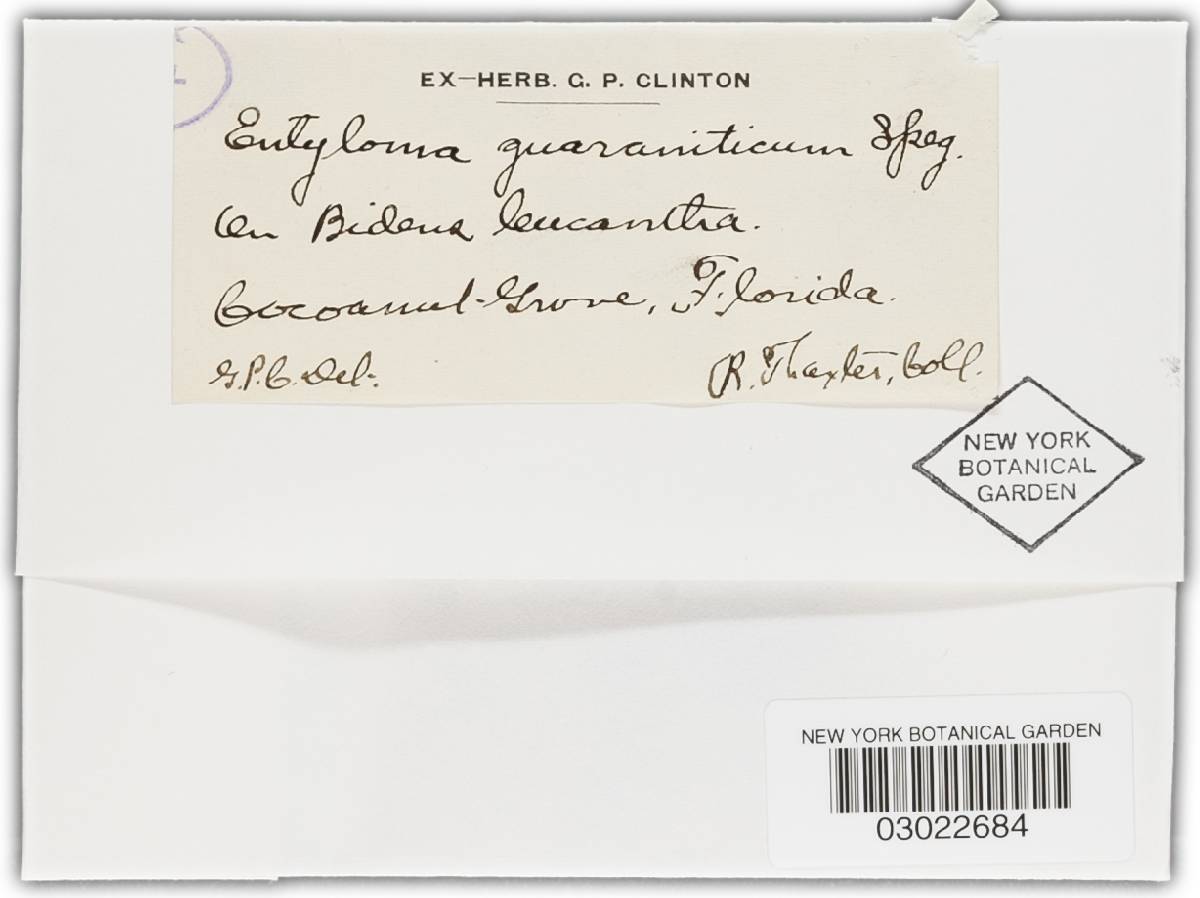 EX-HERB. G. P. CLINTON
Entyloma guaraniticum Speg.
On Bidens leucantha.
Cocoanut-Grove, Florida.
G.P.C. Det. R. Thaxter, Coll.
NEW YORK
BOTANICAL
GARDEN
NEW YORK BOTANICAL GARDEN
03022684